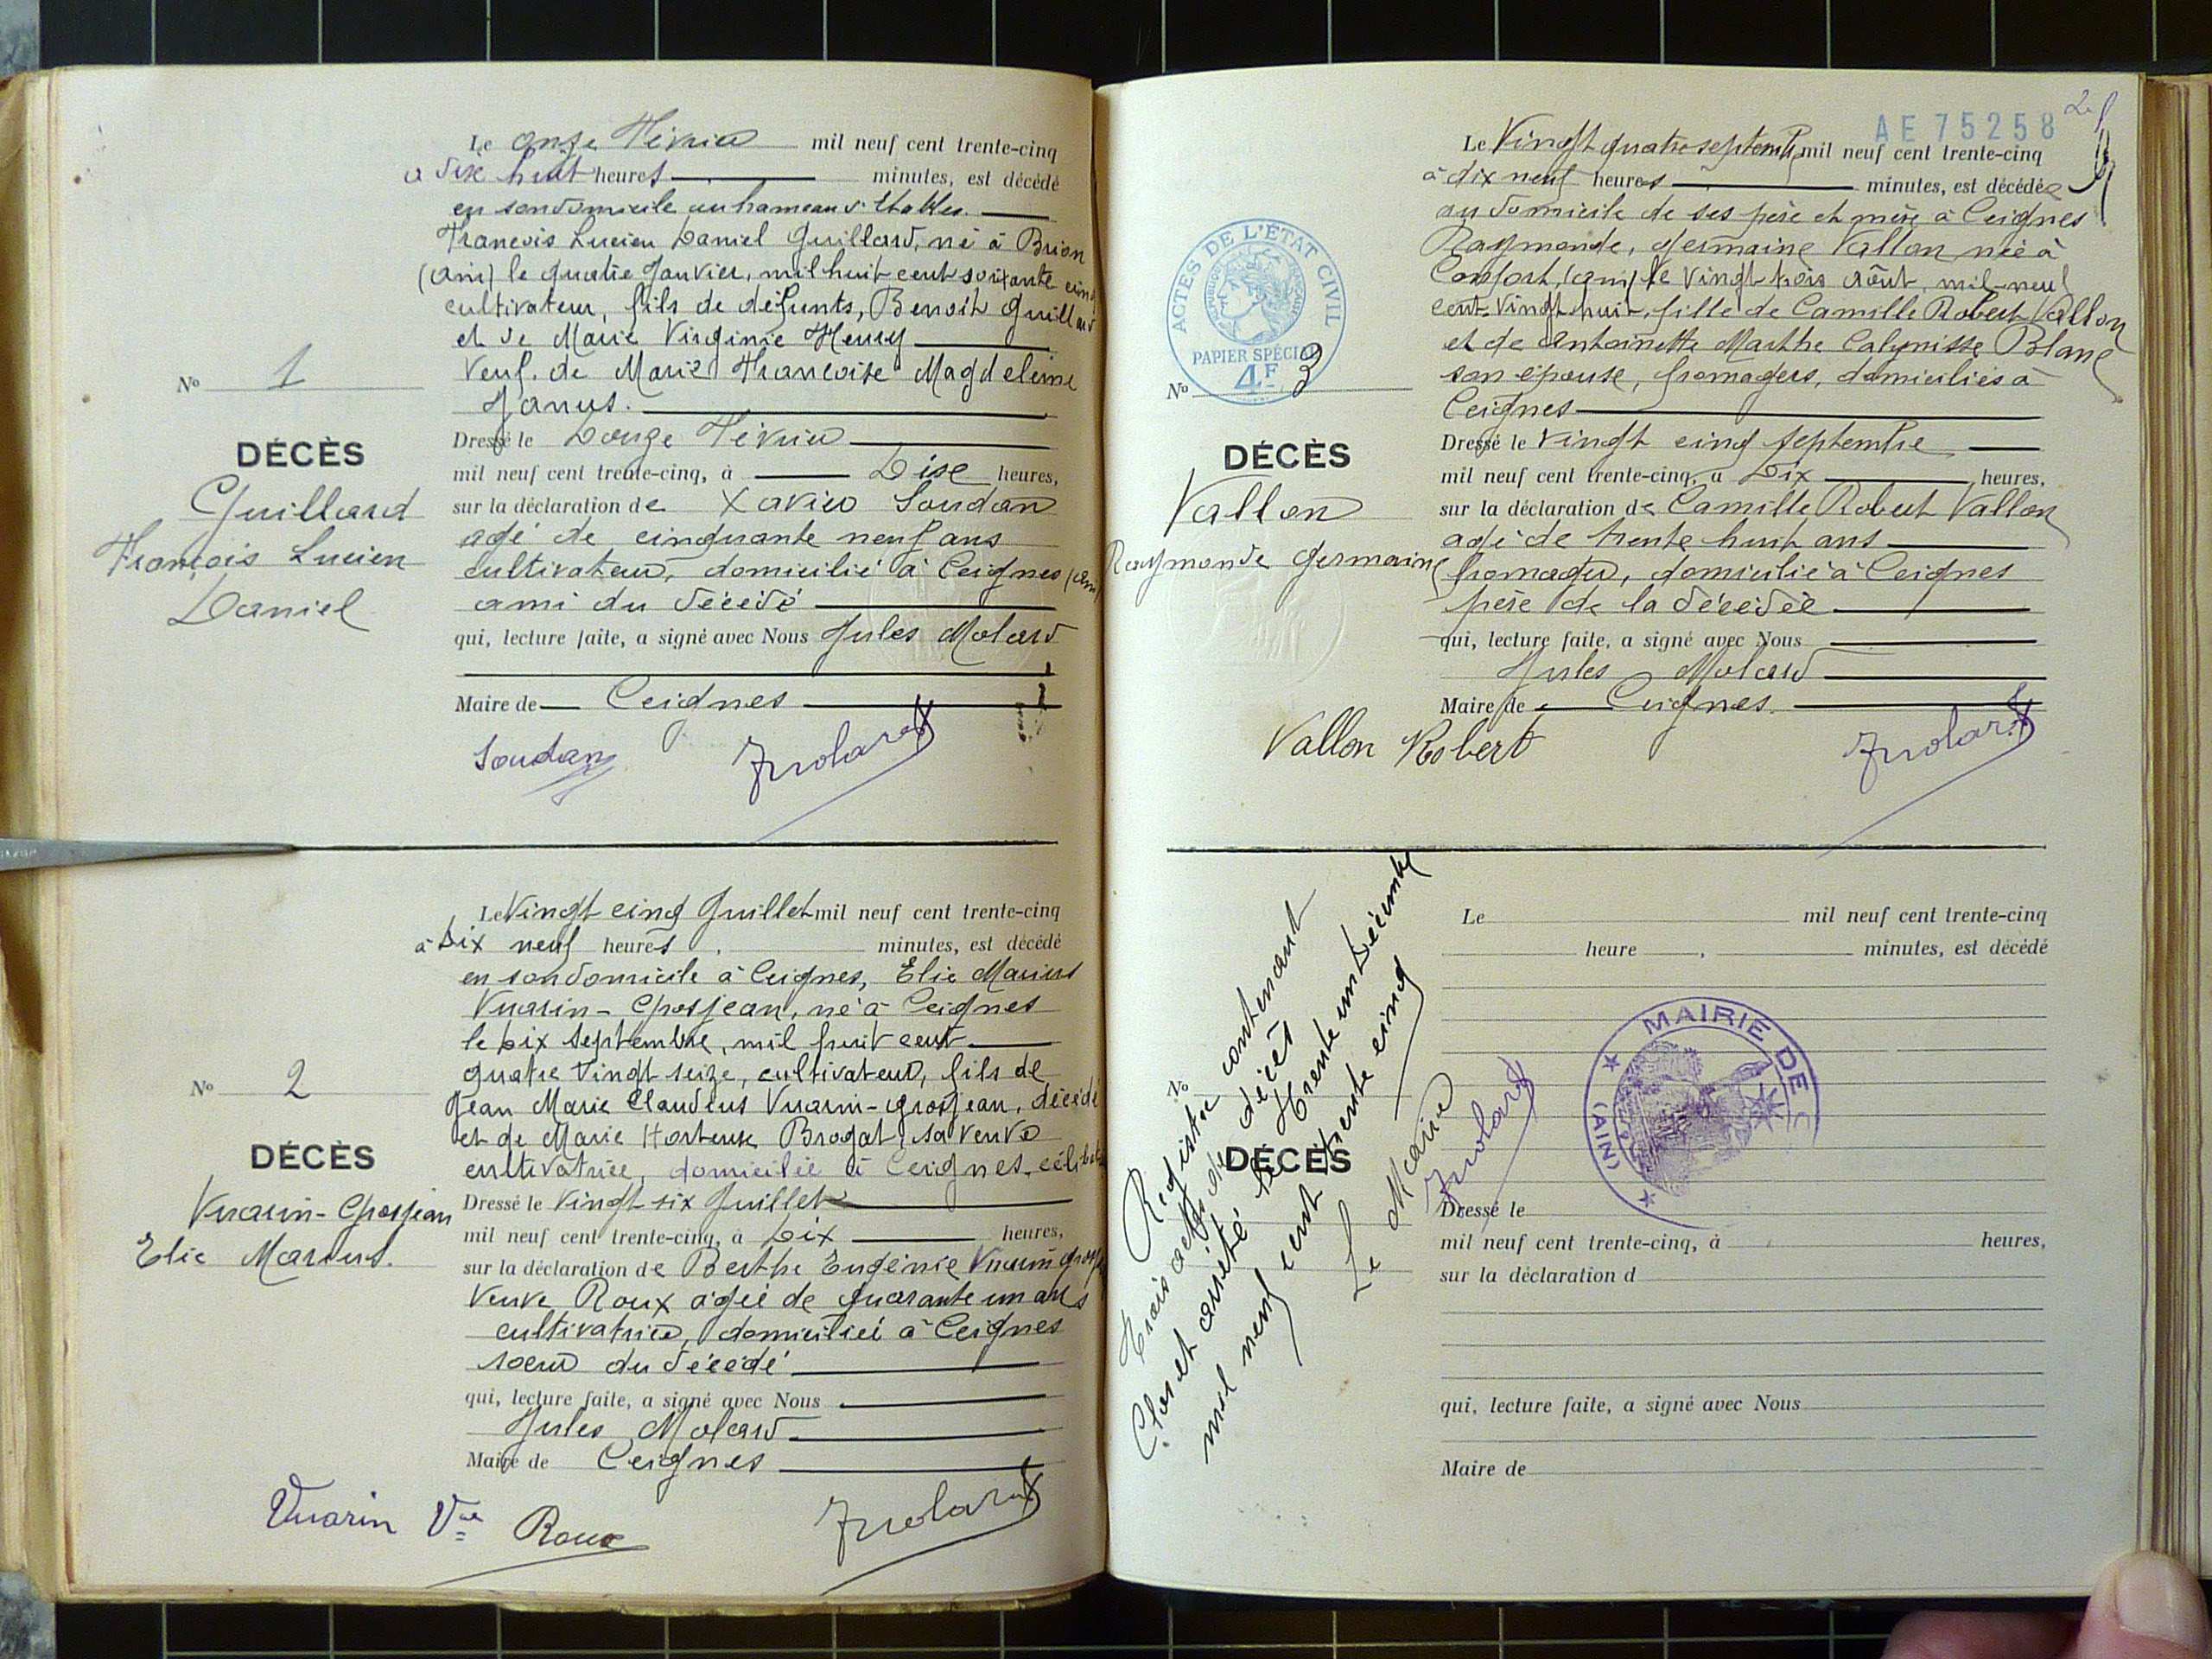 Le onze Février mil neuf cent trente-cinq
à dix huit heures minutes, est décédé
en son domicile au hameau d'Etables.
François Lucien Daniel Guillard, né à Brion
(Ain) le quatre Janvier, mil huit cent soixante cinq
cultivateur, fils de défunts, Benoit Guillard
et de Marie Virginie Henry
Veuf. de Marie Françoise Magdeleine
Janus.
Nº 1
DÉCÈS
Guillard
François Lucien
Daniel
Dressé le Douze Février
mil neuf cent trente-cinq, à Dise heures,
sur la déclaration de Xavier Soudan
agé de cinquante neuf ans
cultivateur, domicilié à Ceignes (Ain)
ami du décédé
qui, lecture faite, a signé avec Nous Jules Molard
Maire de Ceignes
Soudan JMolard
Le Vingt cinq Juillet mil neuf cent trente-cinq
à Dix neuf heures minutes, est décédé
en son domicile à Ceignes, Elie Marius
Vuarin-Grosjean, né à Ceignes
le dix septembre, mil huit cent
quatre vingt seize, cultivateur, fils de
Jean Marie Claudius Vuarin-Grosjean, décédé
et de Marie Hortense Brogat, sa veuve
cultivatrice, domiciliée à Ceignes, célibataire
Nº 2
DÉCÈS
Vuarin-Grosjean
Elie Marius.
Dressé le Vingt six Juillet
mil neuf cent trente-cinq, à Dix heures,
sur la déclaration de Berthe Eugénie Vuarin Grosjean
Veuve Roux agée de quarante un ans
cultivatrice, domiciliée à Ceignes
soeur du décédé
qui, lecture faite, a signé avec Nous
Jules Molard
Maire de Ceignes
Vuarin Vve Roux JMolard
AE 75258
Le Vingt quatre septembre mil neuf cent trente-cinq
à dix neuf heures minutes, est décédée
au domicile de ses père et mère à Ceignes
Raymonde, Germaine Vallon née à
Confort, (Ain) le Vingt trois Août, mil-neuf
cent-vingt huit, fille de Camille Robert Vallon
et de Antoinette Marthe Blanc
son épouse, fromagers, domiciliés à
Ceignes
ACTES DE L'ÉTAT CIVIL
RÉPUBLIQUE FRANÇAISE
PAPIER SPÉCIAL
4F
Nº 3
DÉCÈS
Vallon
Raymonde Germaine
Dressé le vingt cinq septembre
mil neuf cent trente-cinq, à Dix heures,
sur la déclaration de Camille Robert Vallon
agé de trente huit ans
fromager, domicilié à Ceignes
père de la décédée
qui, lecture faite, a signé avec Nous
Jules Molard
Maire de Ceignes.
Vallon Robert JMolard
Le mil neuf cent trente-cinq
heure , minutes, est décédé
Nº
DÉCÈS
Registre contenant
trois actes de décès
Clos et arrêté le trente un Décembre
mil neuf cent trente cinq
Le Maire
JMolard
MAIRIE DE
(AIN)
Dressé le
mil neuf cent trente-cinq, à heures,
sur la déclaration d
qui, lecture faite, a signé avec Nous
Maire de